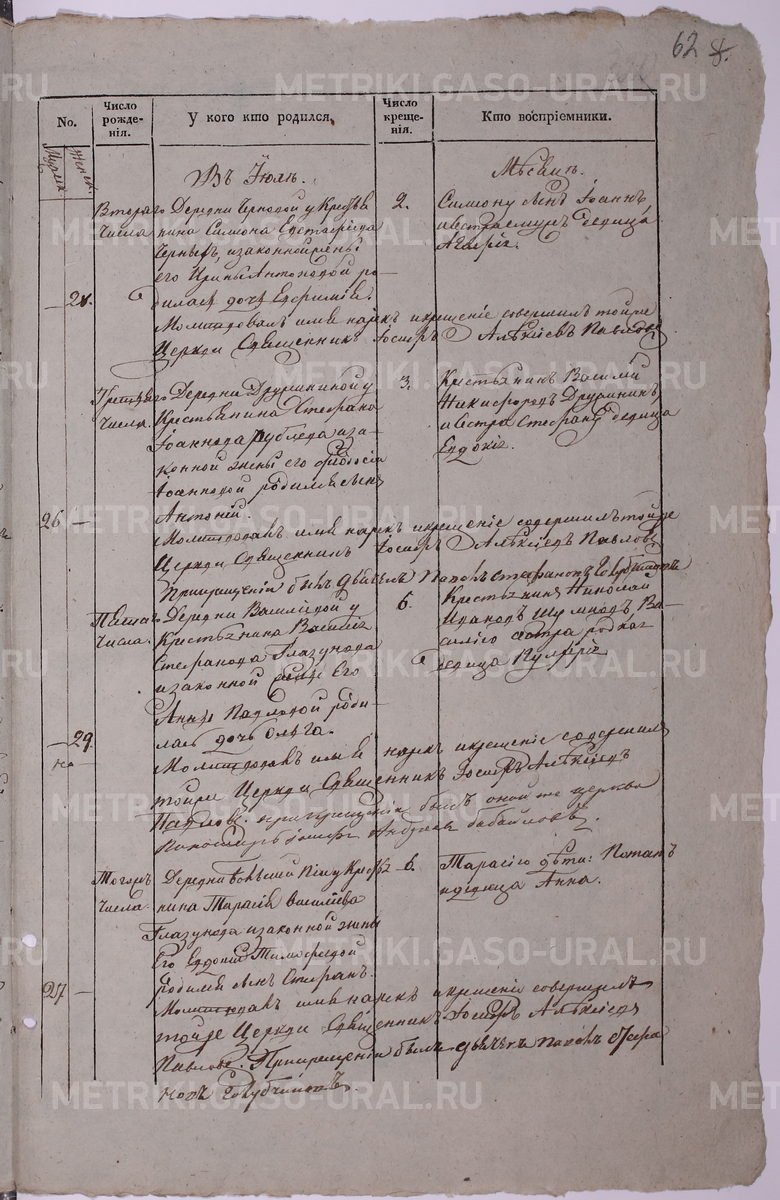 62
No.
Число рожденія.
У кого кто родился.
Число крещенія.
Кто воспріемники.
Мужеск
Женск
Въ Іюлѣ.
Мѣсяцѣ.
Втораго Числа
Деревни Черновой у Крестья
нина Симона Евстафіева
Черныхъ, и законной жены
его Ирины Антоновой ро
дилась дочь Евфимія.
2.
Симону сынъ Іоаннъ,
и сестра ему девица
28.
Молитвовалъ имя нарекъ и крещеніе совершилъ тойже
Церкви Священникъ Іосифъ Алѣксіевъ Павловъ
Третьяго Числа.
Деревни Друшининой у
Крестьянина Стефана
Іоаннова Рублева и за
конной жены его Феодосіи
Іоанновой родился сынъ
Антоній.
3.
Крестьянинъ Василій
Никифоровъ
и сестра Стефану девица
Евдокія.
26 —
Молитвовалъ имя нарекъ и крещеніе совершилъ тойже
Церкви Священникъ Іосифъ Алѣксіевъ Павловъ
При крещеніи былъ дьячекъ Павелъ Стефановъ Голубчиковъ
Пятаго Числа.
Деревни Васильевой у
Крестьянина Василія
Стефанова Глазунова
и законной жены Его
Анны Павловой роди
лась дочь Ольга.
6.
Крестьянинъ Николай
Ивановъ Шумковъ Ва
силію сестра родная
девица
— 29.
Молитвовалъ имя нарекъ и крещеніе совершилъ
тойже Церкви Священникъ Іосифъ Алѣксіевъ
Павловъ. при крещеніи былъ оной же церкви
Пономарь
Тогожъ Числа
Деревни у Крестья
нина Тарасія Василіева
Глазунова и законной жены
Его Евдокіи Тимофеевой
родился сынъ Стефанъ.
6.
Тарасію дѣти: Потапъ
и девица Анна.
27 —
Молитвовалъ имя нарекъ и крещеніе совершилъ
тойже Церкви Священникъ Іосифъ Алѣксіевъ
Павловъ. При крещеніи былъ дьячекъ Павелъ Стефа
новъ Голубчиковъ.
METRIKI.GASO-URAL.RU